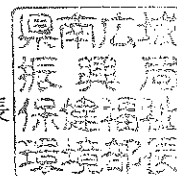 県南広域
振興局
保健福祉
環境部